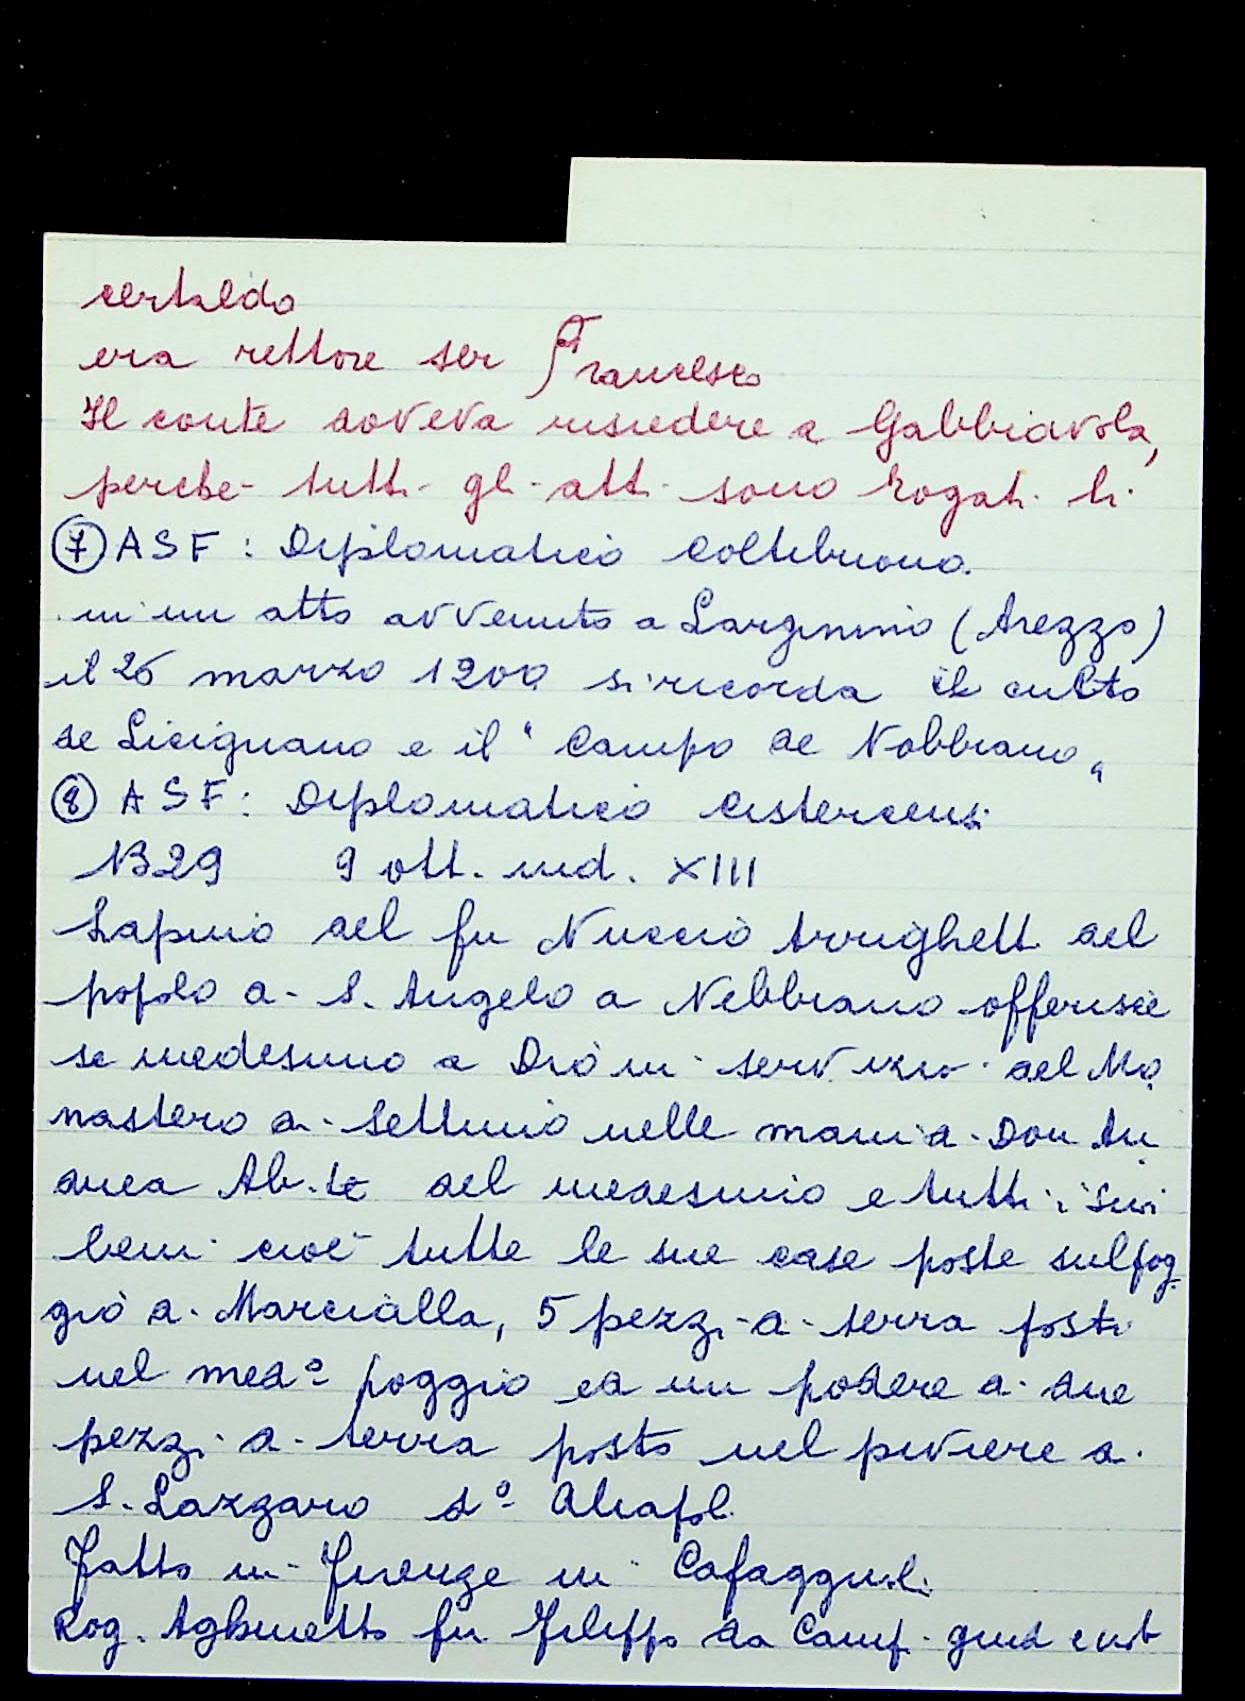 certaldo
era rettore ser Francesco
Il conte doveva risiedere a Gabbiavola,
perchè tutti gli atti sono rogati lì
⑦ ASF: Diplomatico Coltibuono
in un atto avvenuto a Larginino (Arezzo)
il 26 marzo 1200 si ricorda il culto
de Licignano e il "Campo de Nobbiano"
⑧ ASF: Diplomatico Cistercensi
N329 9 ott. ind. XIII
Lapino del fu Nuccio Arrighetti del
popolo di S. Angelo a Nebbiano offerisce
se medesimo a Dio in servizio del Mo
nastero di Settimo nelle mani di Don An
drea Ab.te del medesimo e tutti i suoi
beni cioè tutte le sue case poste sul pog
gio di Marcialla, 5 pezzi di terra posti
nel med° poggio ed un podere di due
pezzi di terra posto nel piviere di
S. Lazzaro d°
Fatto in Firenze in Cafaggioli
Rog. Aghinetto fu Filippo da Camp. giud e not